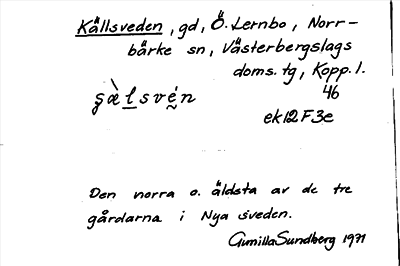 Källsveden, gd, Ö. Lernbo, Norr-
bärke sn, Västerbergslags
doms. tg, Kopp. l.
ʂæ̀lsvén 46
ek12F3e
Den norra o. äldsta av de tre
gårdarna i Nya sveden.
Gunilla Sundberg 1971